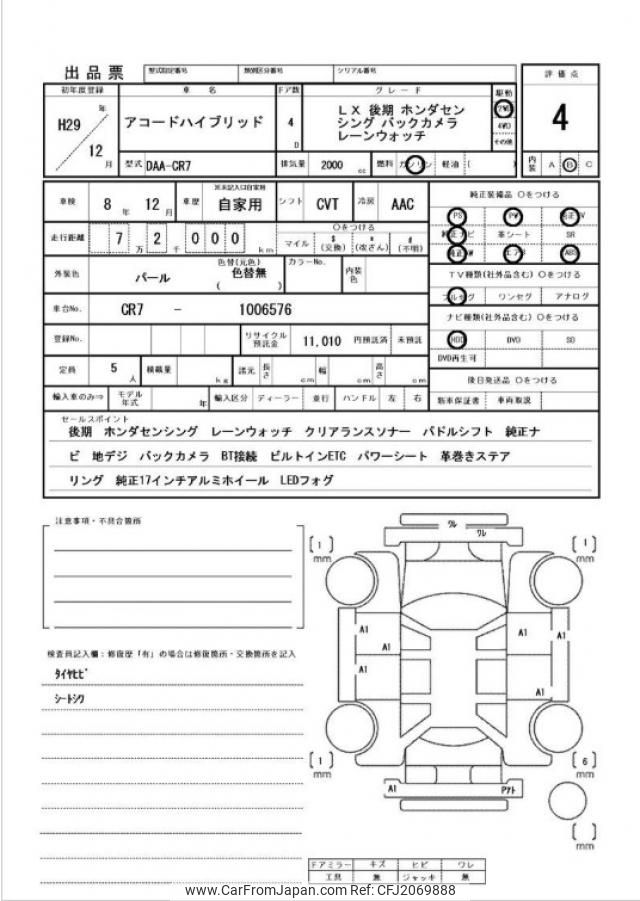 出品票 型式指定番号 類別区分番号 シリアル番号
評価点
4
初年度登録 車名 ドア数 グレード 駆動
H29 年 12 月
アコードハイブリッド
4 D
LX 後期 ホンダセン
シング バックカメラ
レーンウォッチ
2WD
4WD
その他
型式 DAA-CR7 排気量 2000 cc 燃料 ガソリン 軽油 ( )
内装 A B C
車検 8 年 12 月 車歴 自家用 シフト CVT 冷房 AAC
純正装備品 ○をつける
PS PW 純正TV
純正ナビ 革シート SR
純正AW エアB ABS
走行距離 7 万 2 千 0 0 0 km
○をつける
マイル $ (交換) * (改ざん) # (不明)
TV種類(社外品含む) ○をつける
フルセグ ワンセグ アナログ
外装色 パール 色替(元色) 色替無 ( ) カラーNo. 内装色
ナビ種類(社外品含む) ○をつける
HDD DVD SD
DVD再生可
車台No. CR7 - 1006576
登録No. リサイクル預託金 11,010 円預託済 未預託
定員 5 人 積載量 kg 諸元 長さ cm 幅 cm 高さ cm
後日発送品 ○をつける
新車保証書 車両取説
輸入車のみ⇒ モデル年式 年 輸入区分 ディーラー 並行 ハンドル 左 右
セールスポイント
後期 ホンダセンシング レーンウォッチ クリアランスソナー パドルシフト 純正ナ
ビ 地デジ バックカメラ BT接続 ビルトインETC パワーシート 革巻きステア
リング 純正17インチアルミホイール LEDフォグ
注意事項・不具合箇所
検査員記入欄:修復歴「有」の場合は修復箇所・交換箇所を記入
タイヤヒビ
シートシワ
ワレ
ワレ
[ 1 ] mm
[ 1 ] mm
A1
A1
A1
A1
A1
[ 1 ] mm
[ 6 ] mm
A1
Pアト
[ ] mm
ドアミラー キズ ヒビ ワレ
工具 無 ジャッキ 無
www.CarFromJapan.com Ref: CFJ2069888